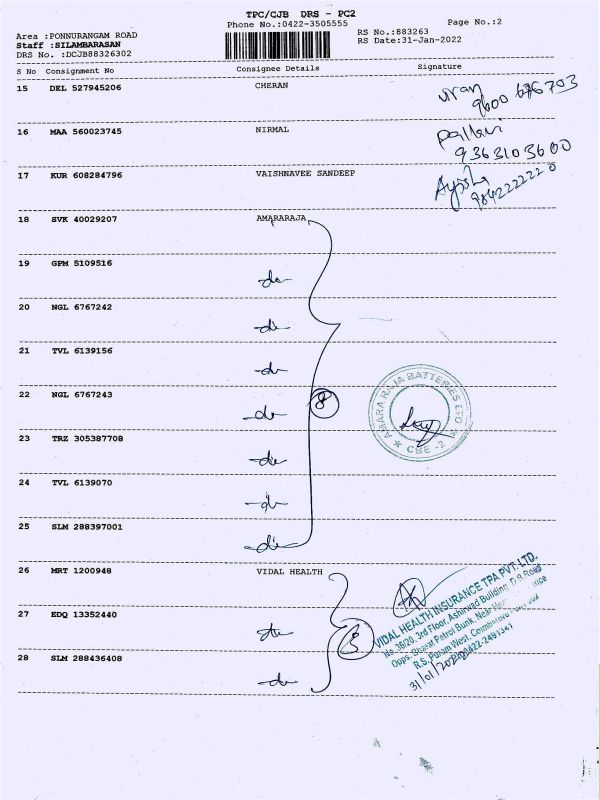 TPC/CJB DRS - PC2
Phone No.:0422-3505555
Page No.:2
Area :PONNURANGAM ROAD
RS No.:883263
Staff :SILAMBARASAN
RS Date:31-Jan-2022
DRS No. :DCJB88326302
S No Consignment No Consignee Details Signature
15 DEL 527945206 CHERAN
9600 676703
16 MAA 560023745 NIRMAL Pallavi
9363103600
17 KUR 608284796 VAISHNAVEE SANDEEP
9842222220
18 SVK 40029207 AMARARAJA
19 GPM 5109516 do
20 NGL 6767242 do
21 TVL 6139156 do
22 NGL 6767243 do 8
23 TRZ 305387708 do
24 TVL 6139070 do
25 SLM 288397001 do
AMARA RAJA BATTERIES LTD
CBE -2
26 MRT 1200948 VIDAL HEALTH
27 EDQ 13352440 do 3
28 SLM 288436408 do
VIDAL HEALTH INSURANCE TPA PVT. LTD.
No. 36/20, 3rd Floor, Ashirwad Building, D.B.Road
Opps. Bharat Petrol Bunk, Near
R.S. Puram West, Coimbatore
0422-2491341
31/01/2022